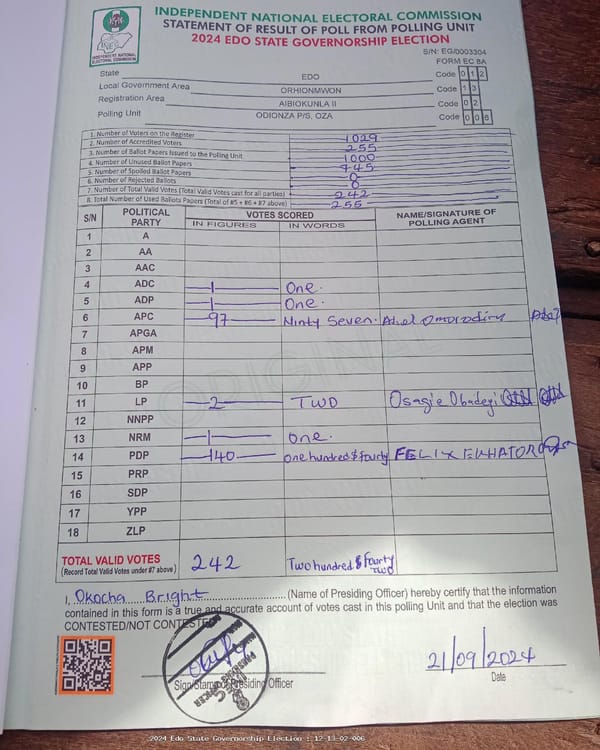 INDEPENDENT NATIONAL ELECTORAL COMMISSION
STATEMENT OF RESULT OF POLL FROM POLLING UNIT
2024 EDO STATE GOVERNORSHIP ELECTION
INDEPENDENT NATIONAL ELECTORAL COMMISSION
S/N: EG/0003304
FORM EC 8A
State EDO Code 0 1 2
Local Government Area ORHIONMWON Code 1 3
Registration Area AIBIOKUNLA II Code 0 2
Polling Unit ODIONZA P/S, OZA Code 0 0 6
1. Number of Voters on the Register 1029
2. Number of Accredited Voters 255
3. Number of Ballot Papers Issued to the Polling Unit 1000
4. Number of Unused Ballot Papers 745
5. Number of Spoiled Ballot Papers 0
6. Number of Rejected Ballots
7. Number of Total Valid Votes (Total Valid Votes cast for all parties) 242
8. Total Number of Used Ballots Papers (Total of #5 + #6 + #7 above) 255
S/N POLITICAL PARTY VOTES SCORED NAME/SIGNATURE OF POLLING AGENT
IN FIGURES IN WORDS
1 A
2 AA
3 AAC
4 ADC 1 One.
5 ADP 1 One.
6 APC 97 Ninty Seven.
7 APGA
8 APM
9 APP
10 BP
11 LP 2 TWO Osagie Obadegi
12 NNPP
13 NRM 1 One.
14 PDP 140 one hundred $ fourty FELIX EKHATOR
15 PRP
16 SDP
17 YPP
18 ZLP
ORIGINAL
TOTAL VALID VOTES 242 Two hundred $ fourty two
(Record Total Valid Votes under #7 above)
I, Okocha Bright (Name of Presiding Officer) hereby certify that the information
contained in this form is a true and accurate account of votes cast in this polling Unit and that the election was
CONTESTED/NOT CONTESTED
21/09/2024
Sign/Stamp of Presiding Officer Date
2024 Edo State Governorship Election : 12-13-02-006